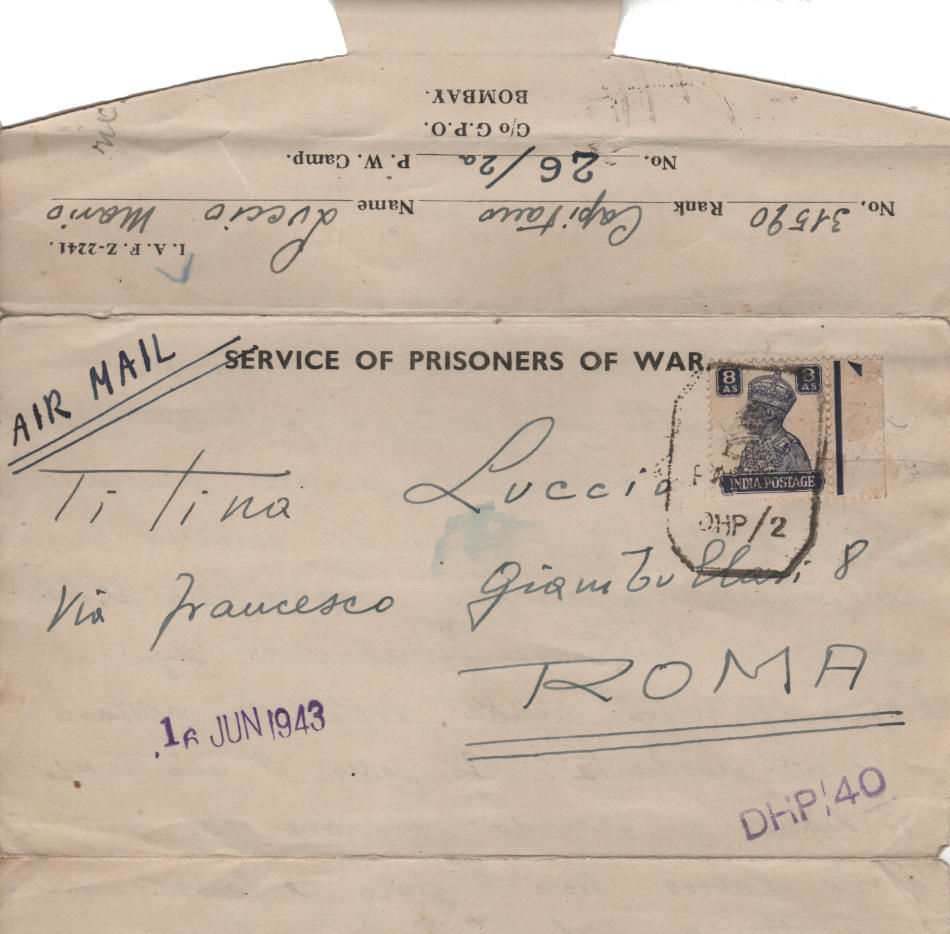 I. A. F. Z-2241.
No. 31590 Rank Capitano Name Luccio Mario
No. 26/2a P. W. Camp.
C/o G.P.O.
BOMBAY.
AIR MAIL
SERVICE OF PRISONERS OF WAR.
8 AS 8 AS
INDIA POSTAGE
DHP/2
Titina Luccio
Via Francesco Giambullari 8
ROMA
16 JUN 1943
DHP/40